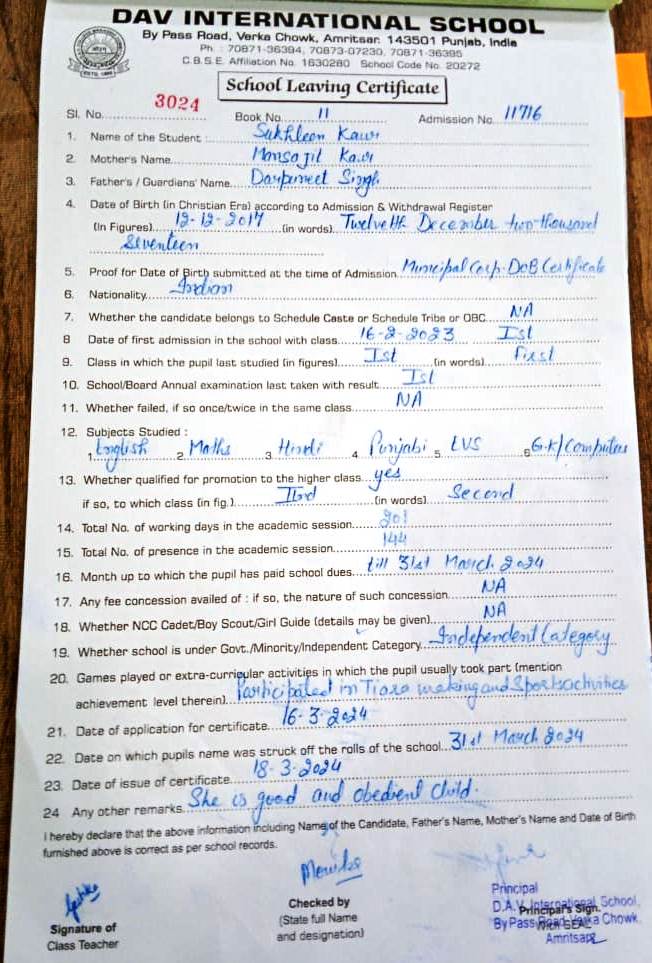 DAV INTERNATIONAL SCHOOL
By Pass Road, Verka Chowk, Amritsar. 143501 Punjab, India
Ph : 70871-36394, 70873-07230, 70871-36395
C.B.S.E. Affiliation No. 1630280 School Code No. 20272
School Leaving Certificate
Sl. No. 3024 Book No. 11 Admission No. 11716
1. Name of the Student : Sukhleen Kaur
2. Mother's Name Kaur
3. Father's / Guardians' Name Singh
4. Date of Birth (in Christian Era) according to Admission & Withdrawal Register
(In Figures) 12-12-2017 (in words) Twelveth December two thousand
Seventeen
5. Proof for Date of Birth submitted at the time of Admission Municipal Corp. DOB Certificate
6. Nationality Indian
7. Whether the candidate belongs to Schedule Caste or Schedule Tribe or OBC NA
8 Date of first admission in the school with class 16-2-2023 Ist
9. Class in which the pupil last studied (in figures) Ist (in words) First
10. School/Board Annual examination last taken with result Ist
11. Whether failed, if so once/twice in the same class NA
12. Subjects Studied :
1 English 2 Maths 3 Hindi 4 Punjabi 5 EVS 6 G.K/Computers
13. Whether qualified for promotion to the higher class yes
if so, to which class (in fig.) IInd (in words) Second
14. Total No. of working days in the academic session 201
15. Total No. of presence in the academic session 144
16. Month up to which the pupil has paid school dues till 31st March 2024
17. Any fee concession availed of : if so, the nature of such concession NA
18. Whether NCC Cadet/Boy Scout/Girl Guide (details may be given) NA
19. Whether school is under Govt./Minority/Independent Category Independent Category
20. Games played or extra-curricular activities in which the pupil usually took part (mention
achievement level therein) Participated in Tiara making and Sports activities
21. Date of application for certificate 16-3-2024
22. Date on which pupils name was struck off the rolls of the school 31st March 2024
23. Date of issue of certificate 18-3-2024
24 Any other remarks She is good and obedient child.
I hereby declare that the above information including Name of the Candidate, Father's Name, Mother's Name and Date of Birth
furnished above is correct as per school records.
Signature of
Class Teacher
Checked by
(State full Name
and designation)
Principal
D.A.V. International School,
Principal's Sign.
By Pass Road, Verka Chowk
With SEAL
Amritsar